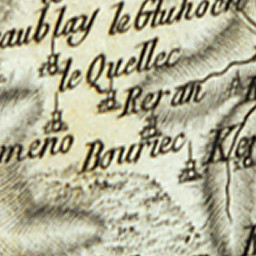 aublay le Gluhoen
le Quellec
Reran
meno Bouriec Kleg